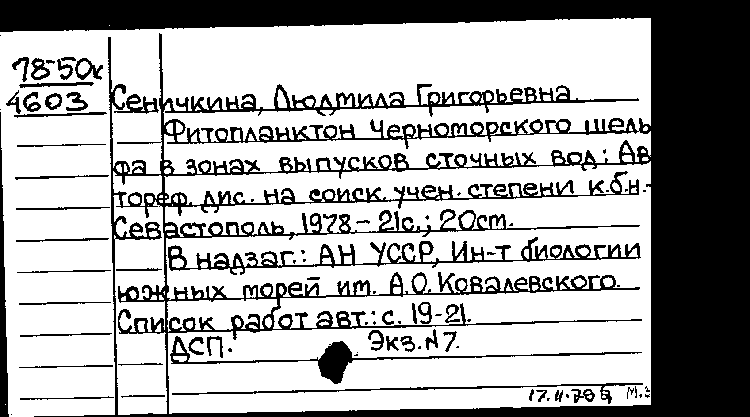 78-50к
4603 Сеничкина, Людмила Григорьевна.
Фитопланктон Черноморского шель
фа в зонах выпусков сточных вод: Ав
тореф. дис. на соиск. учен. степени к.б.н.-
Севастополь, 1978.- 21с.; 20см.
В надзаг.: АН УССР, Ин-т биологии
южных морей им. А.О. Ковалевского.
Список работ авт.: с. 19-21.
ДСП. Экз. N7.